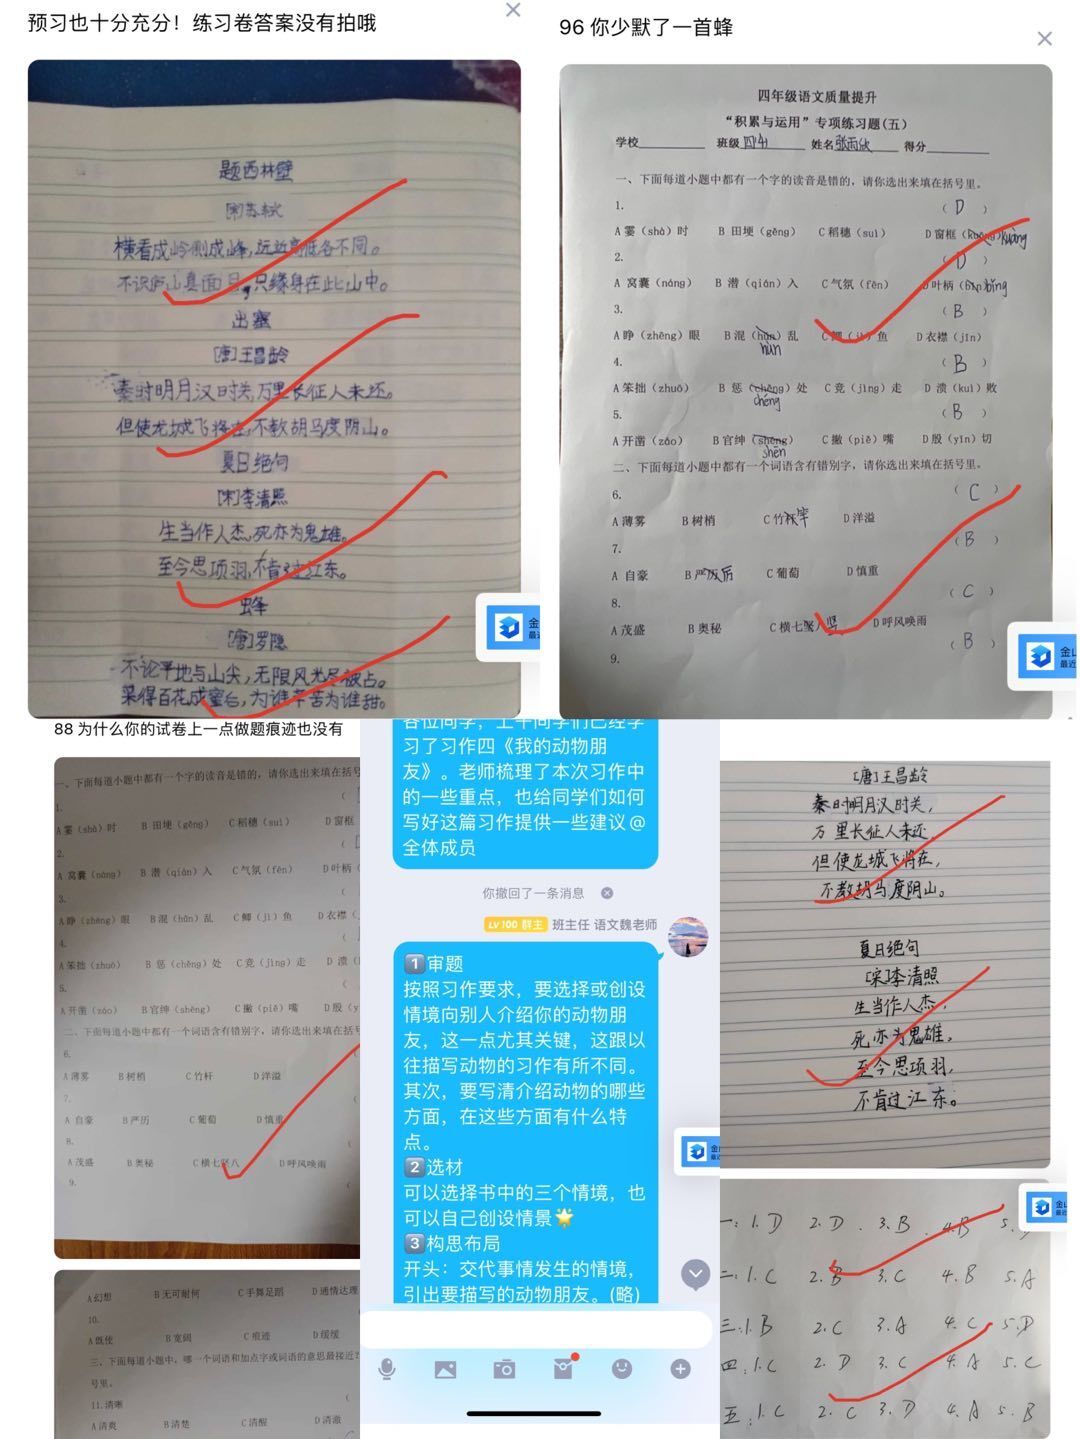 预习也十分充分！练习卷答案没有拍哦
题西林壁
[宋]苏轼
横看成岭侧成峰，远近高低各不同。
不识庐山真面目，只缘身在此山中。
出塞
[唐]王昌龄
秦时明月汉时关，万里长征人未还。
但使龙城飞将在，不教胡马度阴山。
夏日绝句
[宋]李清照
生当作人杰，死亦为鬼雄。
至今思项羽，不肯过江东。
蜂
[唐]罗隐
不论平地与山尖，无限风光尽被占。
采得百花成蜜后，为谁辛苦为谁甜。
96 你少默了一首蜂
四年级语文质量提升
“积累与运用”专项练习题(五)
学校 班级 姓名 得分
一、下面每道小题中都有一个字的读音是错的，请你选出来填在括号里。
1. ( D )
A 霎（shà）时 B 田埂（gěng） C 稻穗（suì） D 窗框（kuāng）kuàng
2. ( D )
A 窝囊（nāng） B 潜（qián）入 C 气氛（fēn） D 叶柄（bǐn）bǐng
3. ( B )
A 睁（zhēng）眼 B 混（hǔn）乱 C 鲫（jì）鱼 D 衣襟（jīn）
hùn
4. ( B )
A 笨拙（zhuō） B 惩（chěng）处 C 竞（jìng）走 D 溃（kuì）败
chéng
5. ( B )
A 开凿（záo） B 官绅（shēng） C 撇（piě）嘴 D 殷（yīn）切
shēn
二、下面每道小题中都有一个词语含有错别字，请你选出来填在括号里。
6. ( C )
A 薄雾 B 树梢 C 竹杆 竿 D 洋溢
7. ( B )
A 自豪 B 严历 厉 C 葡萄 D 慎重
8. ( C )
A 茂盛 B 奥秘 C 横七坚八 竖 D 呼风唤雨
9. ( B )
88 为什么你的试卷上一点做题痕迹也没有
一、下面每道小题中都有一个字的读音是错的，请你选出来填在括号
1.
A 霎（shà）时 B 田埂（gěng） C 稻穗（suì） D 窗框
2.
A 窝囊（nāng） B 潜（qián）入 C 气氛（fēn） D 叶柄
3.
A 睁（zhēng）眼 B 混（hǔn）乱 C 鲫（jì）鱼 D 衣襟
4.
A 笨拙（zhuō） B 惩（chěng）处 C 竞（jìng）走 D 溃
5.
A 开凿（záo） B 官绅（shēng） C 撇（piě）嘴 D 殷
二、下面每道小题中都有一个词语含有错别字，请你选出来填在括号
6.
A 薄雾 B 树梢 C 竹杆 D 洋溢
7.
A 自豪 B 严历 C 葡萄 D 慎重
8.
A 茂盛 B 奥秘 C 横七坚八 D 呼风唤雨
9.
A 幻想 B 无可耐何 C 手舞足蹈 D 通情达理
10.
A 既使 B 宽阔 C 痕迹 D 缓缓
三、下面每道小题中，哪一个词语和加点字或词语的意思最接近？
号里。
11.清晰
A 清爽 B 清楚 C 清醒 D 清澈
各位同学，上午同学们已经学
习了习作四《我的动物朋
友》。老师梳理了本次习作中
的一些重点，也给同学们如何
写好这篇习作提供一些建议@
全体成员
你撤回了一条消息
LV100 群主 班主任 语文魏老师
1 审题
按照习作要求，要选择或创设
情境向别人介绍你的动物朋
友，这一点尤其关键，这跟以
往描写动物的习作有所不同。
其次，要写清介绍动物的哪些
方面，在这些方面有什么特
点。
2 选材
可以选择书中的三个情境，也
可以自己创设情景
3 构思布局
开头：交代事情发生的情境，
引出要描写的动物朋友。(略)
[唐]王昌龄
秦时明月汉时关，
万里长征人未还。
但使龙城飞将在，
不教胡马度阴山。
夏日绝句
[宋]李清照
生当作人杰，
死亦为鬼雄。
至今思项羽，
不肯过江东。
一：1. D 2. D 3. B 4. B 5.
二：1. C 2. B 3. C 4. B 5. A
三：1. B 2. C 3. A 4. C 5. D
四：1. C 2. D 3. C 4. A 5. C
五：1. C 2. C 3. D 4. A 5. B